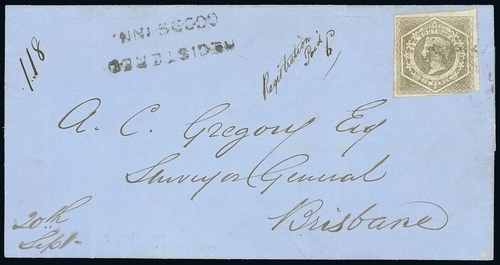 118
REGISTERED
Registration
Paid 6
A. C. Gregory Esq
Surveyor General
Brisbane
20th
Sept